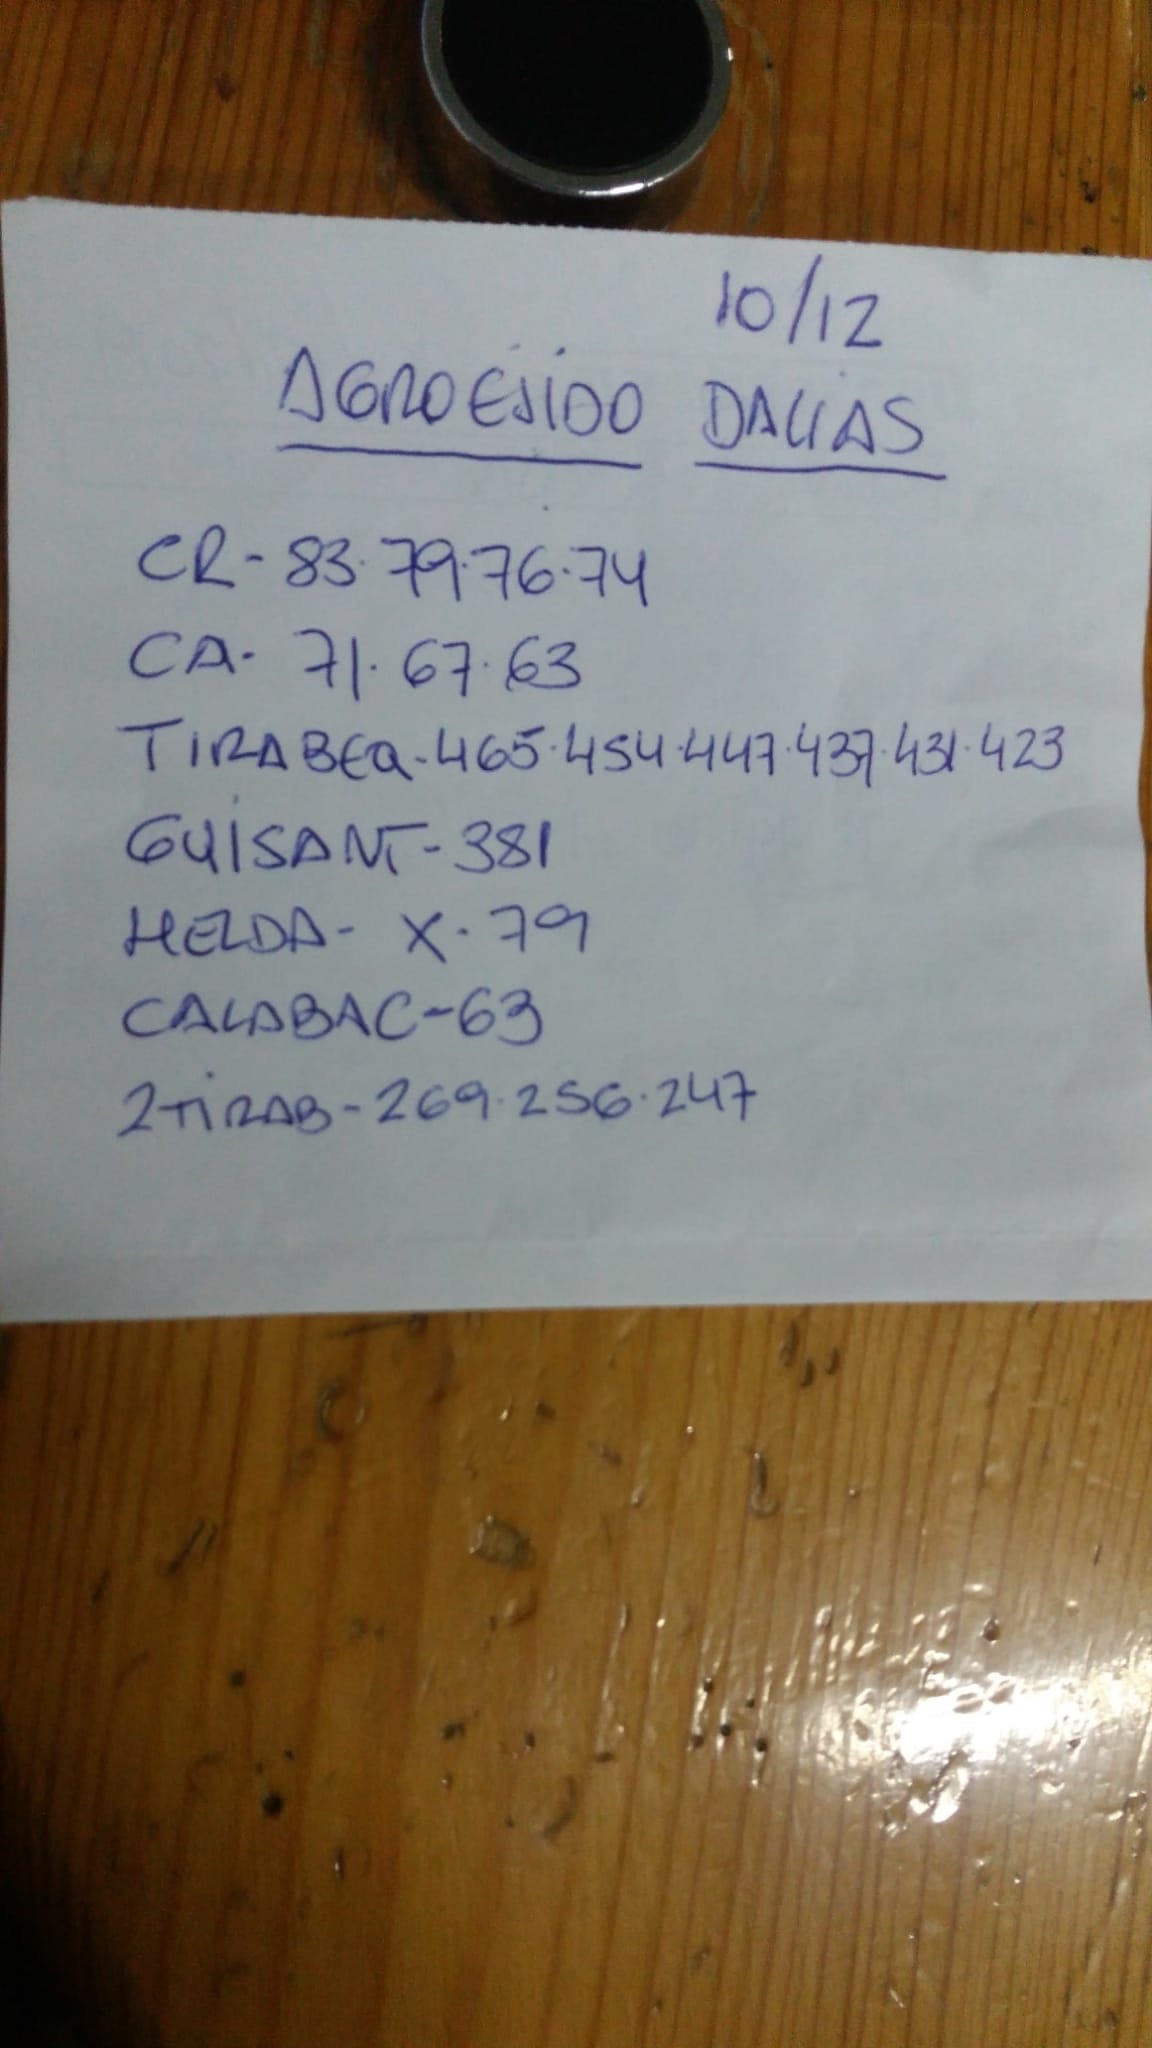 10/12
AGROEJIDO DALIAS
CR- 83.79.76.74
CA- 71.67.63
TIRABEQ-465.454.447.437.431.423
GUISANT-381
HELDA- X-79
CALABAC-63
2TIRAB-269.256.247